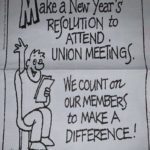 Make a New Year's
RESOLUTION to
ATTEND
UNION MEETINGS.
WE COUNT on
OUR MEMBERS
to MAKE A
DIFFERENCE!